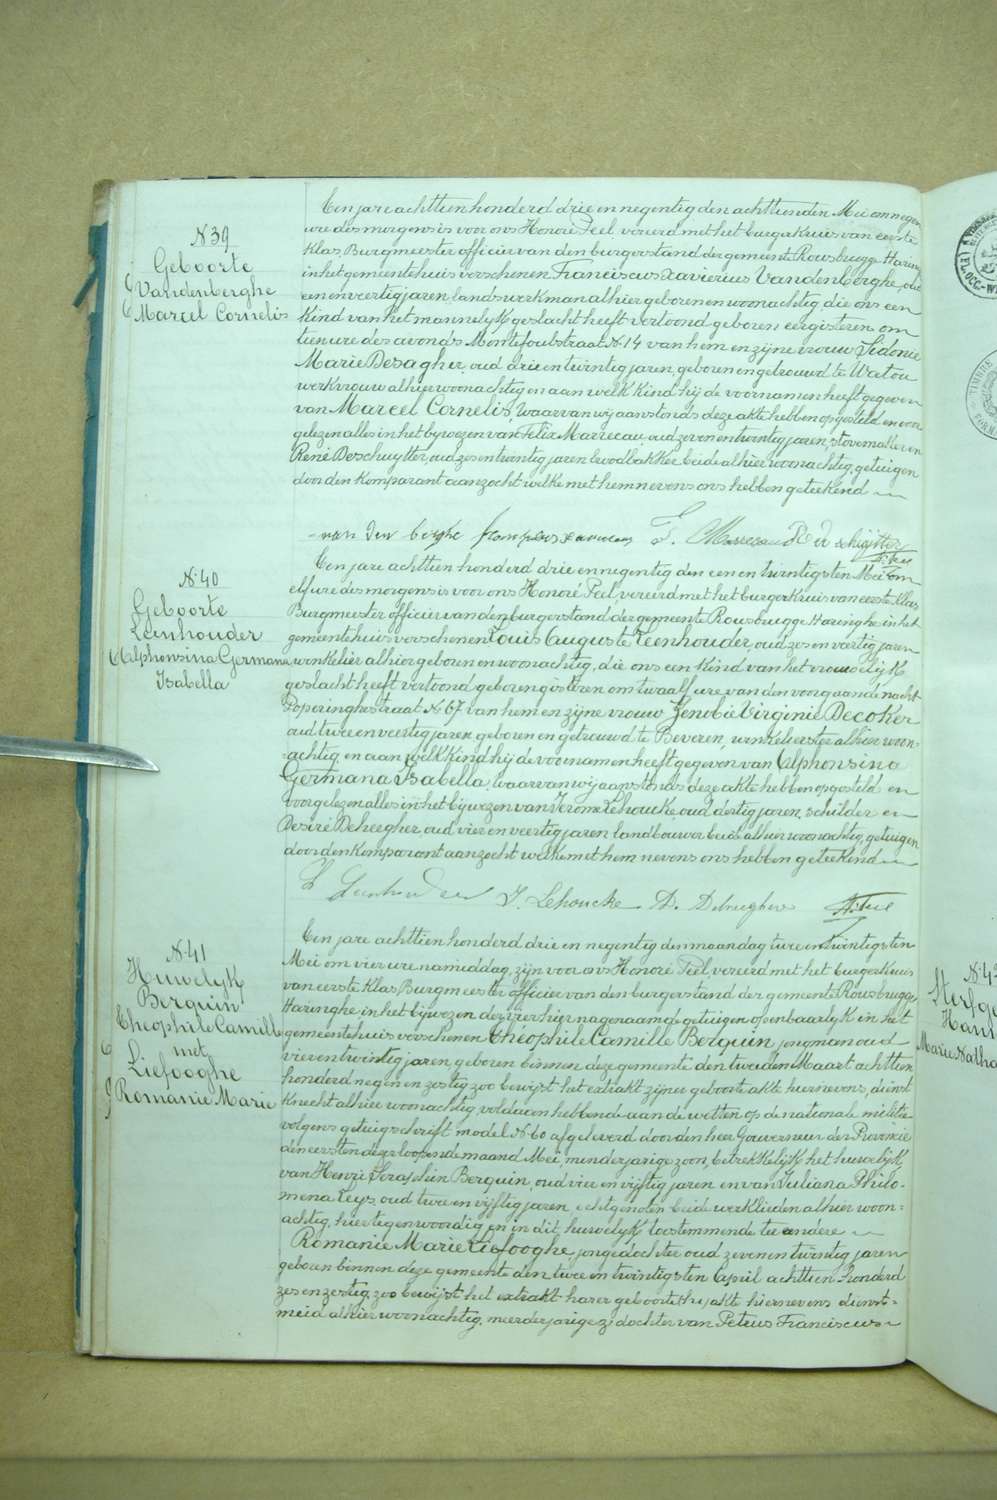 N 39
Geboorte
Vandenberghe
Marcel Cornelis
Een jare achttien honderd drie en negentig den achttienden Mei om negen
ure des morgens is voor ons Honoré Peel vereerd met het burgerkruis van eerste
klas, Burgmeester officier van den burgerstand der gemeente Rousbrugge Haringhe
in het gemeentehuis verschenen Franciscus Xaverius Vandenberghe, oud
een en veertig jaren, landswerkman alhier geboren en woonachtig, die ons een
kind van het mannelyk geslacht heeft vertoond geboren eergisteren om
tien ure des avonds Montefoubstraat N 14 van hem en zijne vrouw Sidonie
Marie Desagher, oud drie en twintig jaren, geboren en getrouwd te Watou
werkvrouw alhier woonachtig en aan welk kind hij de voornamen heeft gegeven
van Marcel Cornelis, waarvan wij aanstonds deze akte hebben opgesteld en voor
gelezen alles in het bywezen van Felix Marrecau, oud zeven en twintig jaren, stovemaker en
René Deschuytter, oud zes en twintig jaren broodbakker beide alhier woonachtig, getuigen
door den komparant aanzocht welke met hem nevens ons hebben geteekend
van den berghe fransius xaverius F. Marrecau R De schuytter
H. Peel
N. 40
Geboorte
Leenhouder
Alphonsina Germana
Isabella
Een jare achttien honderd drie en negentig den een en twintigsten Mei om
elf ure des morgens is voor ons Honoré Peel vereerd met het burgerkruis van eerste klas,
Burgmeester officier van den burgerstand der gemeente Rousbrugge Haringhe in het
gemeentehuis verschenen Louis Auguste Leenhouder, oud zes en veertig jaren
winkelier alhier geboren en woonachtig, die ons een kind van het vrouwelyk
geslacht heeft vertoond geboren gisteren om twaalf ure van den voorgaande nacht
Poperinghestraat N 67 van hem en zijne vrouw Zenobie Virginie Decoker
oud twee en veertig jaren geboren en getrouwd te Beveren, winkelierster alhier woon-
achtig en aan welk kind hij de voornamen heeft gegeven van Alphonsina
Germana Isabella, waarvan wij aanstonds deze akte hebben opgesteld en
voorgelezen alles in het bijwezen van Jerome Lehoucke, oud dertig jaren, schilder en
Desiré Deheegher, oud vier en veertig jaren landbouwer beide alhier woonachtig, getuigen
door den komparant aanzocht welke met hem nevens ons hebben geteekend
L Leenhouder J. Lehoucke D. H. Peel
N. 41
Huwelyk
Berquin
Theophile Camille
met
Liefooghe
Romanie Marie
Een jare achttien honderd drie en negentig den maandag twee en twintigsten
Mei om vier ure namiddag, zijn voor ons Honoré Peel, vereerd met het burgerkruis
van eerste klas, Burgmeester officier van den burgerstand der gemeente Rousbrugge,
Haringhe, in het bijwezen der vier hier nagenaamde getuigen openbaarlyk in het
gemeentehuis verschenen Théophile Camille Berquin, jongman oud
vier en twintig jaren, geboren binnen deze gemeente den tweeden Maart achttien
honderd negen en zestig zoo bewijst het extrakt zijner geboorte akte hiernevens, dienst
knecht alhier woonachtig, voldaan hebbende aan de wetten op de nationale militie
volgens getuigschrift model N 60 afgeleverd door den heer Gouverneur der Provincie
den eersten dezer loopende maand Mei, minderjarige zoon, betrekkelijk het huwelijk,
van Henri Seraphin Berquin, oud vier en vijftig jaren en van Juliana Philo-
mena Leys, oud twee en vijftig jaren, echtgenoten beide werklieden alhier woon-
achtig, hier tegenwoordig en in dit huwelyk toestemmende te andere
Romanie Marie Liefooghe, jonge dochter oud zeven en twintig jaren
geboren binnen deze gemeente den twee en twintigsten April achttien honderd
zes en zestig, zoo bewijst het extrakt harer geboorte akte hiernevens dienst-
meid alhier woonachtig, meerderjarige dochter van Petrus Franciscus
N. 42
Marie Natha